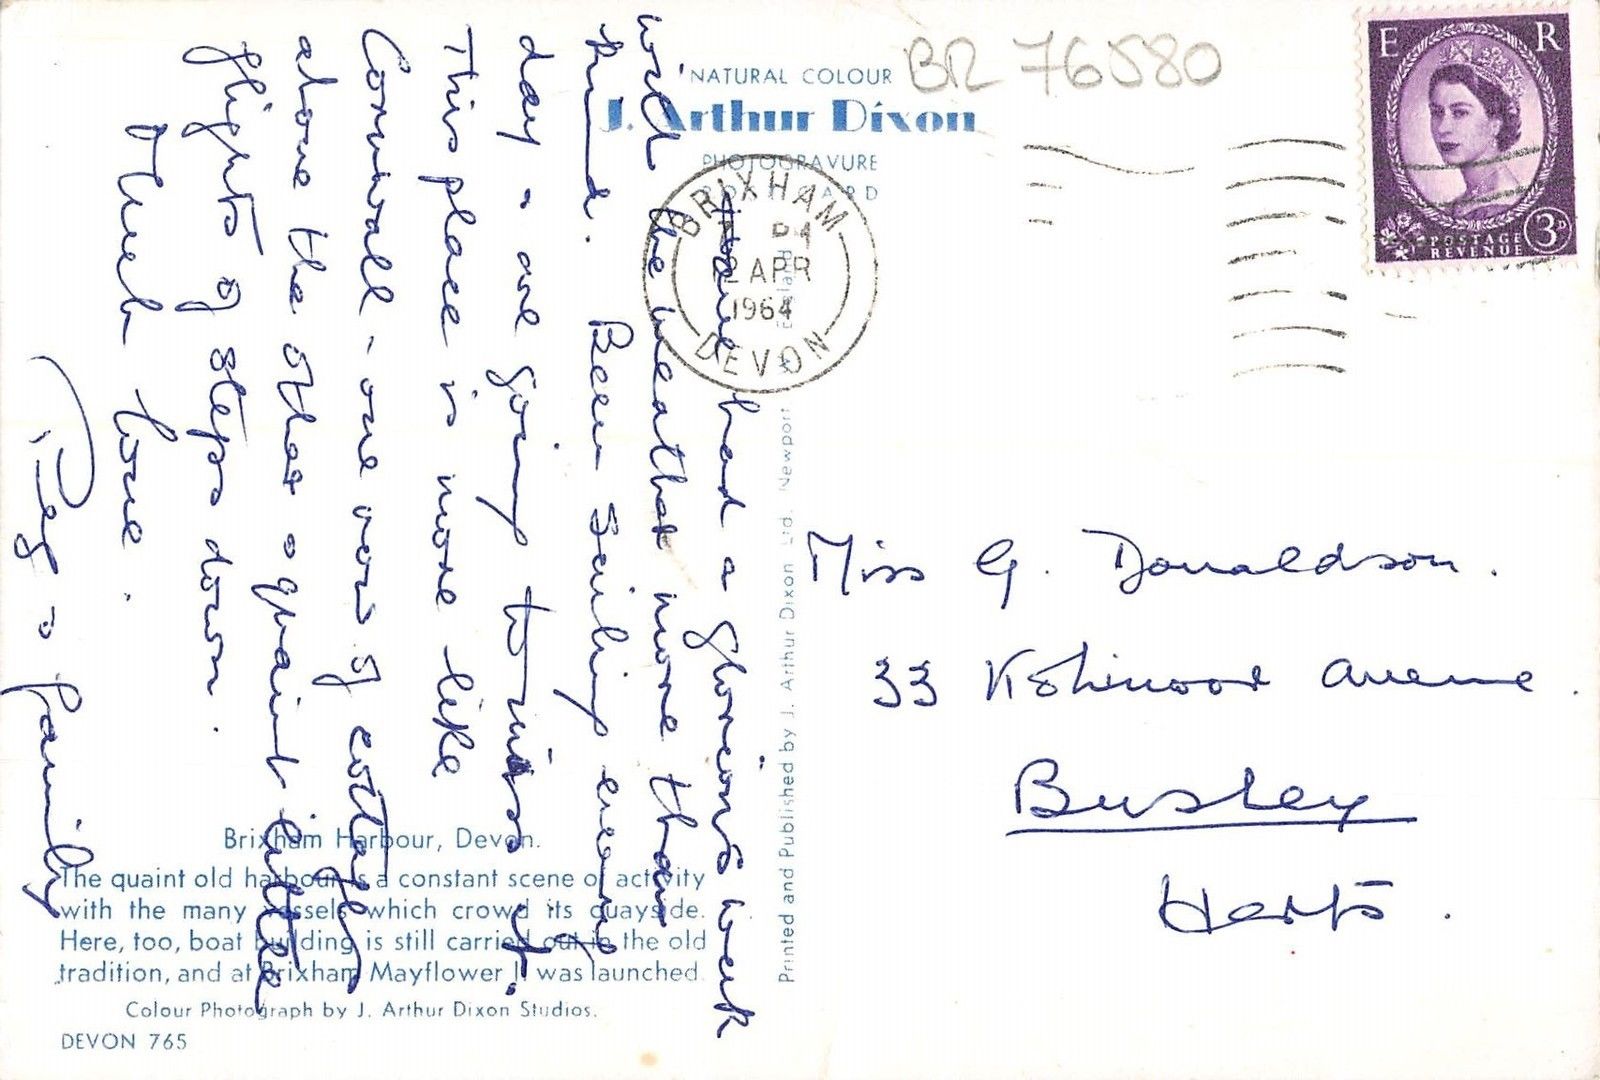 BR 76580
'NATURAL COLOUR
J. Arthur Dixon
PHOTOGRAVURE
POSTCARD
E R
POSTAGE
REVENUE
3D
BRIXHAM
PM
2 APR
1964
DEVON
Have had a glorious week
with the weather more than
kind. Been Sailing every
day & are going to miss it.
This place is more like
Cornwall - one row of cottages
above the other & quaint little
flights of steps down.
Much love.
Reg & family
Miss G. Donaldson.
33 Avenue.
Bushey
Herts.
Printed and Published by J. Arthur Dixon Ltd. Newport
Brixham Harbour, Devon.
The quaint old harbour is a constant scene of activity
with the many vessels which crowd its quayside.
Here, too, boat building is still carried out in the old
tradition, and at Brixham Mayflower II was launched.
Colour Photograph by J. Arthur Dixon Studios.
DEVON 765